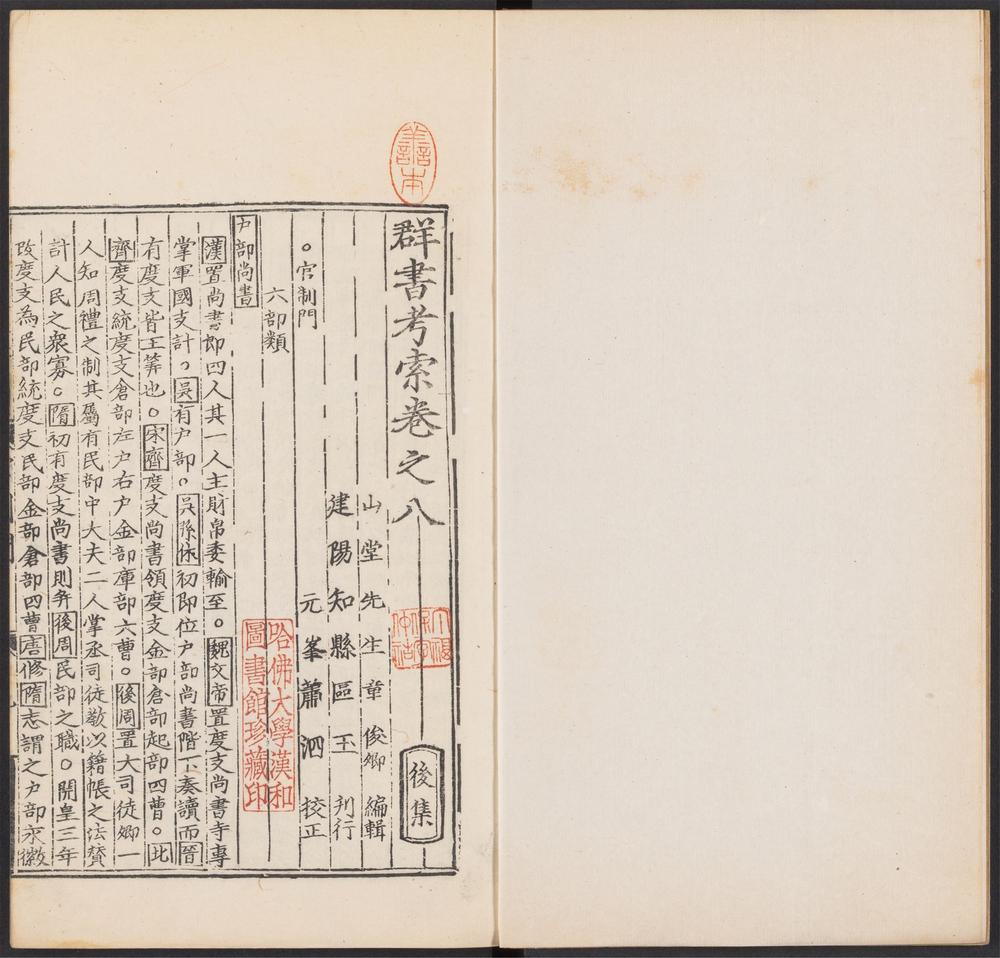 善本
群書考索卷之八
後集
山堂先生章俊卿編輯
建陽知縣區玉刋行
元峯蕭泗校正
。官制門
六部類
哈佛大學漢和
圖書館珍藏印
户部尚書
漢置尚書郎四人其一人主財帛委輸至。魏文帝置度支尚書寺專
掌軍國支計。吳有户部。吳孫休初即位户部尚書階下奏讀而晉
有度支皆王筭也。宋齊度支尚書領度支金部倉部起部四曹。北
齊度支統度支倉部左户右户金部庫部六曹。後周置大司徒卿一
人知周禮之制其屬有民部中大夫二人掌丞司徒敎以籍帳之法賛
計人民之衆寡。隋初有度支尚書則并後周民部之職。開皇三年
改度支為民部統度支民部金部倉部四曹唐修隋志謂之户部永徽